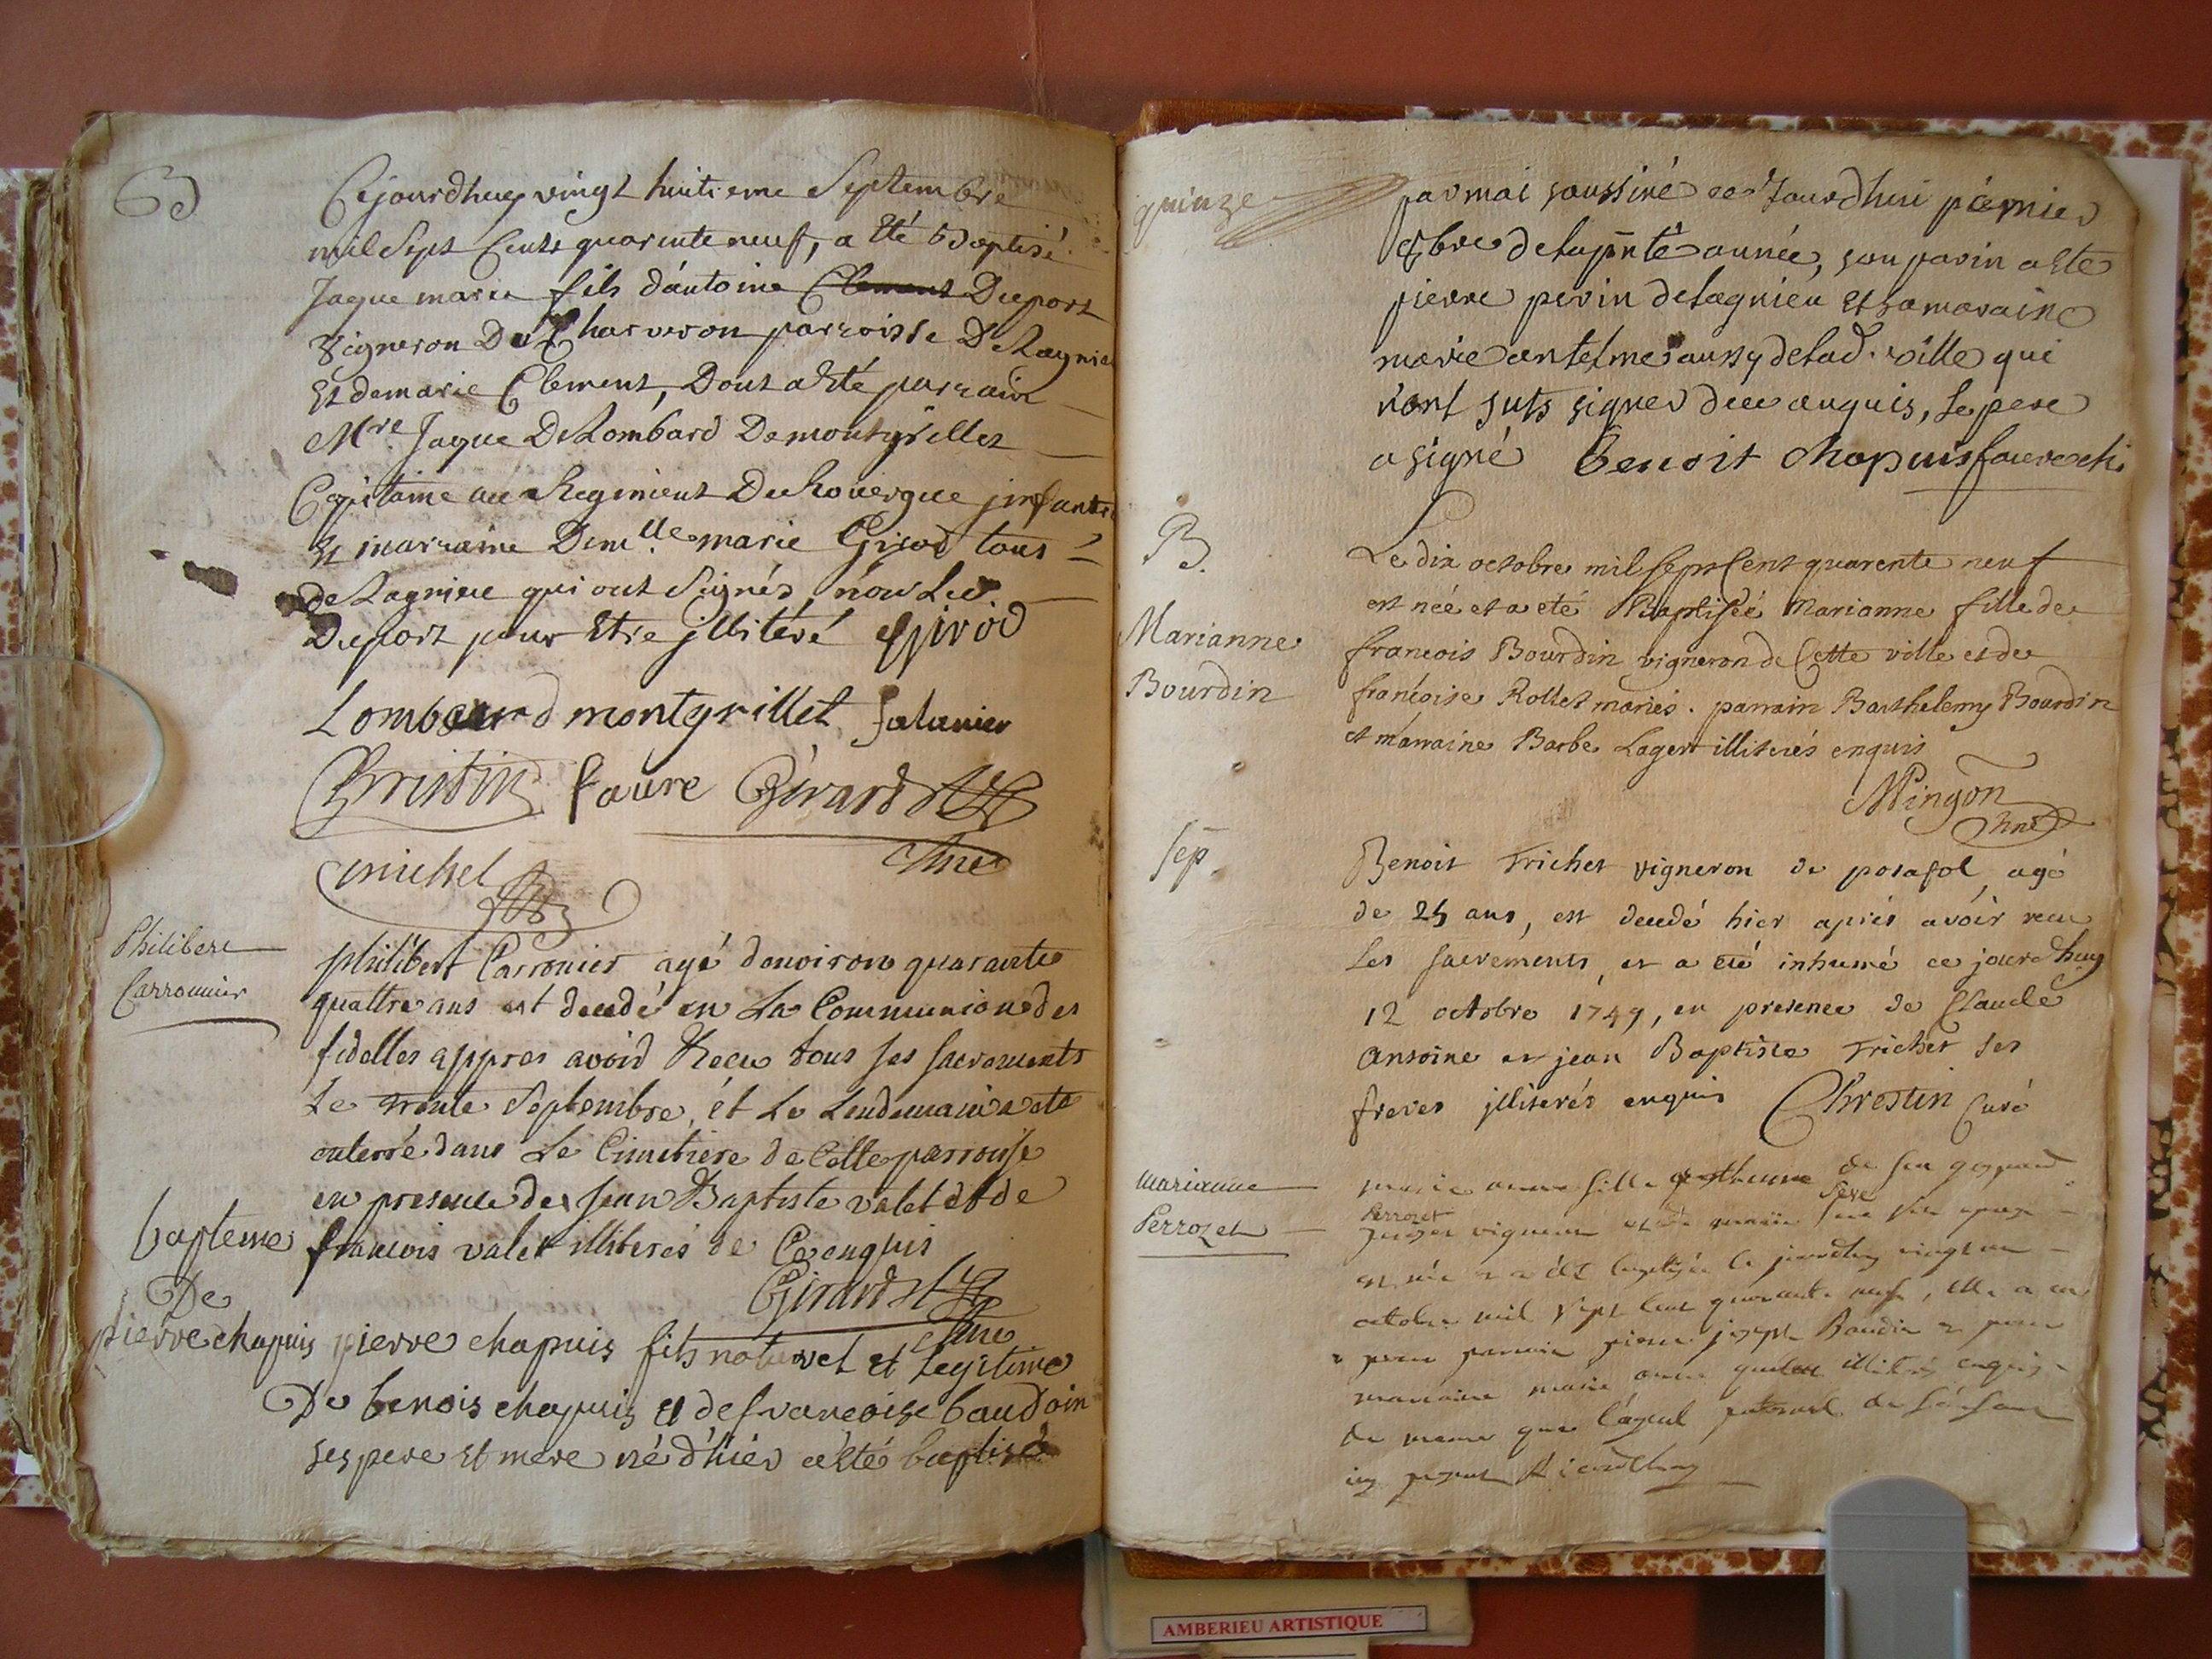 B
Cejourdhuy vingt huitieme Septembre
mil Sept Cents quarente neuf, a Eté Baptisé
Jaque marie fils d'antoine Clement Duport
vigneron De Charveron parroisse De Lagnieu
Et de marie Clement, Dont a Eté parrain
Mre. Jaque De Lombard De montgrillet
Capitaine au Regiment De Rouergue jnfanterie
Et marraine Demlle. marie Girod tous
de Lagnieu qui ont Signés, non Led
Duport pour Etre jlliteré Girod
Lombard montgrillet
Chrestin faure Girard
michel
Philibert
Carronnier
philibert Carronier agé denviron quarante
quattre ans est decedé en La Communion des
fidelles appres avoir Recu tous ses sacrements
Le trente Septembre, et Le Lendemain a ete
enterré dans Le Cimetiere de Cette parroisse
en presence de Jean Baptiste valet et de
francois valet illiterés de Ce enquis
Girard
bapteme
De
pierre chapuis
pierre chapuis fils naturel et Legitime
De benois chapuis et de francoise baudoin
ses pere Et mere né d'hier a Eté baptisé
quinze
par moi soussiné ce Jourdhui premier
8bre de la pnte année, son parin a Eté
pierre perin de lagnieu Et sa maraine
marie antelme aussy de lad. ville qui
n'ont suts signer de ce anquis, Le pere
a signé Benoit Chapuis faure
B.
Marianne
Bourdin
Le dix octobre mil Sept Cent quarente neuf
est neé et a eté Baptiseé Marianne fille de
francois Bourdin vigneron de Cette ville et de
francoise Rollet mariés. parrain Barthelemy Bourdin
et marraine Barbe Lager illiterés enquis
Mingon
Sep.
Benoit Trichet vigneron de posafol, agé
de 25 ans, est decedé hier aprés avoir recu
Les sacrements, et a eté inhumé ce jourdhuy
12 octobre 1749, en presence de Claude
Antoine et jean Baptiste Trichet ses
freres jlliterés enquis Chrestin Curé
marianne
Perrozet
marie anne fille posthume de feu
Perrozet
vigneron et de
est née et a été baptisée le jourdhuy vingt un
octobre mil sept cent quarante neuf, elle a eu
pour parrain pierre joseph Baudin et pour
marraine marie anne illiterés enquis
de meme que l'ayeul paternel de l'enfant